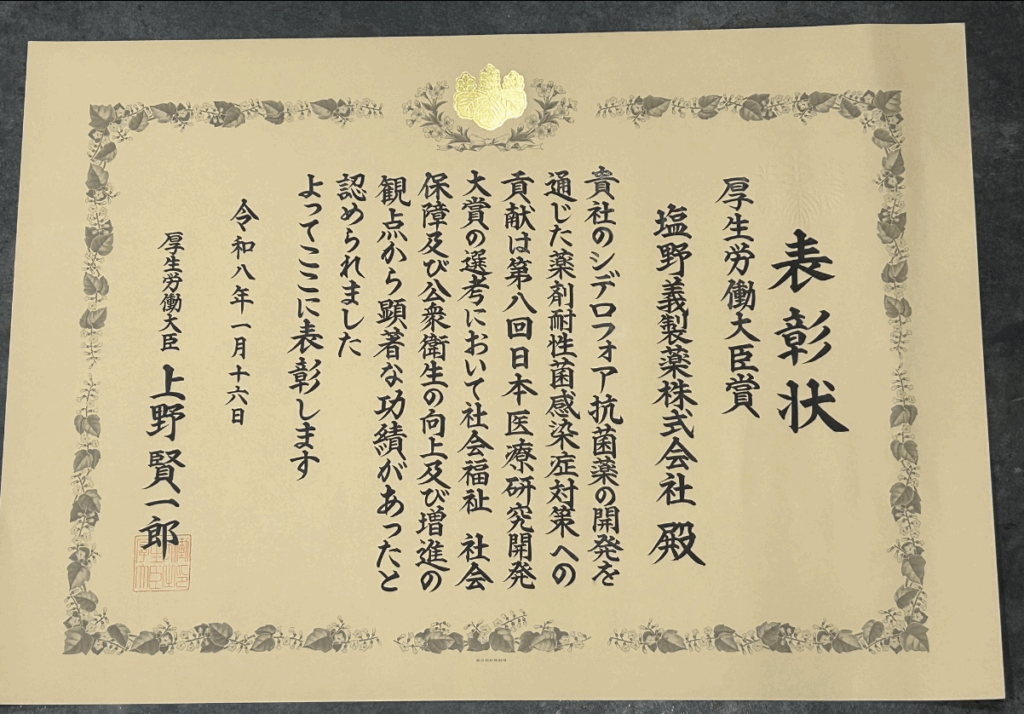 表彰状
厚生労働大臣賞
塩野義製薬株式会社 殿
貴社のシデロフォア抗菌薬の開発を
通じた薬剤耐性菌感染症対策への
貢献は第八回日本医療研究開発
大賞の選考において社会福祉 社会
保障及び公衆衛生の向上及び増進の
観点から顕著な功績があったと
認められました
よってここに表彰します
令和八年一月十六日
厚生労働大臣 上野賢一郎